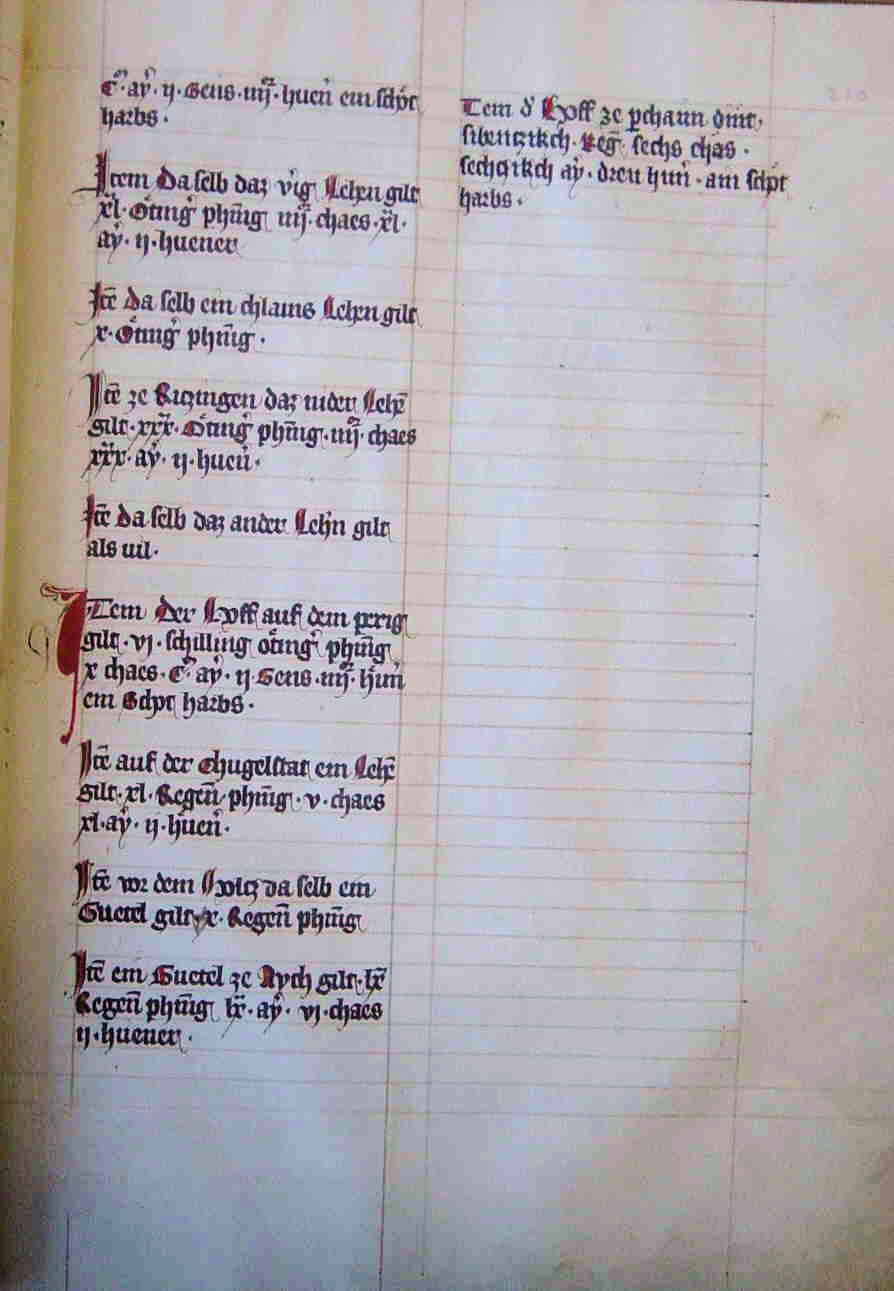 C · aẙ · ij · Gens · iiij · huen̄ ein schpt
harbs ·
Item Da selb daz vi̊g Lehen gilt
xl · Ötingˀ phn̄ig iiij · chaes · xl ·
aẙ · ij · huener
Itē da selb ein chlains Lehen gilt
x · Ötingˀ phn̄ig ·
Itē ze Ritzingen daz nider Lehē
gilt · xxx · Ötingˀ phn̄ig · iiij · chaes
xxx · aẙ · ij · huen̄ ·
Itē Da selb daz ander Lehn gilt
als uil ·
ITem Der Hoff auf dem perig
gilt · vj · schilling ötingˀ phn̄ig
x chaes · C · aẙ · ij · Gens · iiij · hůn̄
ein Schpt harbs ·
Itē auf der Chugelstat ein Lehē
gilt · xl · Regen̄ phn̄ig · v · chaes
xl · aẙ · ij · huen̄ ·
Itē vor dem Holtz da selb ein
Guetel gilt x · Regen̄ phn̄ig
Itē ein Guetel ze Aych gilt · lx
Regen̄ phn̄ig lx · aẙ · vj · chaes
ij · huener ·
Tem dˀ Hoff ze pchaim dint ·
sibentzikch · Reḡ · sechs chäs ·
sechtzikch aẙ · dreu hun̄ · ain schpt
harbs ·